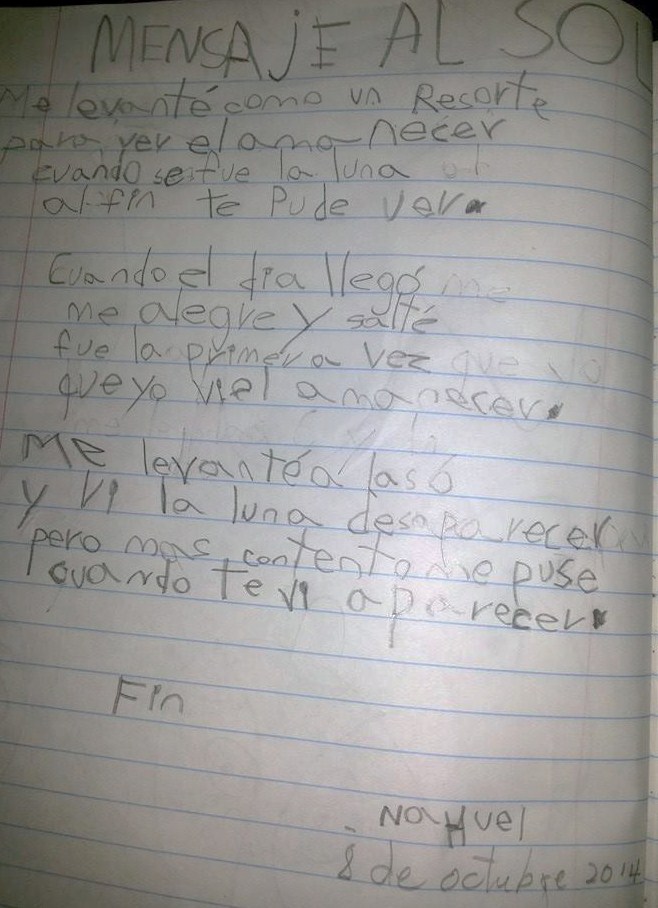 MENSAJE AL SOL
Me levanté como un Resorte
para ver el amanecer
cuando se fue la luna
al fin te Pude ver.
Cuando el dia llegó
me alegre y salté
fue la primera vez
que yo vi el amanecer.
Me levanté a las 6
y vi la luna desaparecer
pero mas contento me puse
cuando te vi aparecer.
Fin
NaHuel
8 de octubre 2014